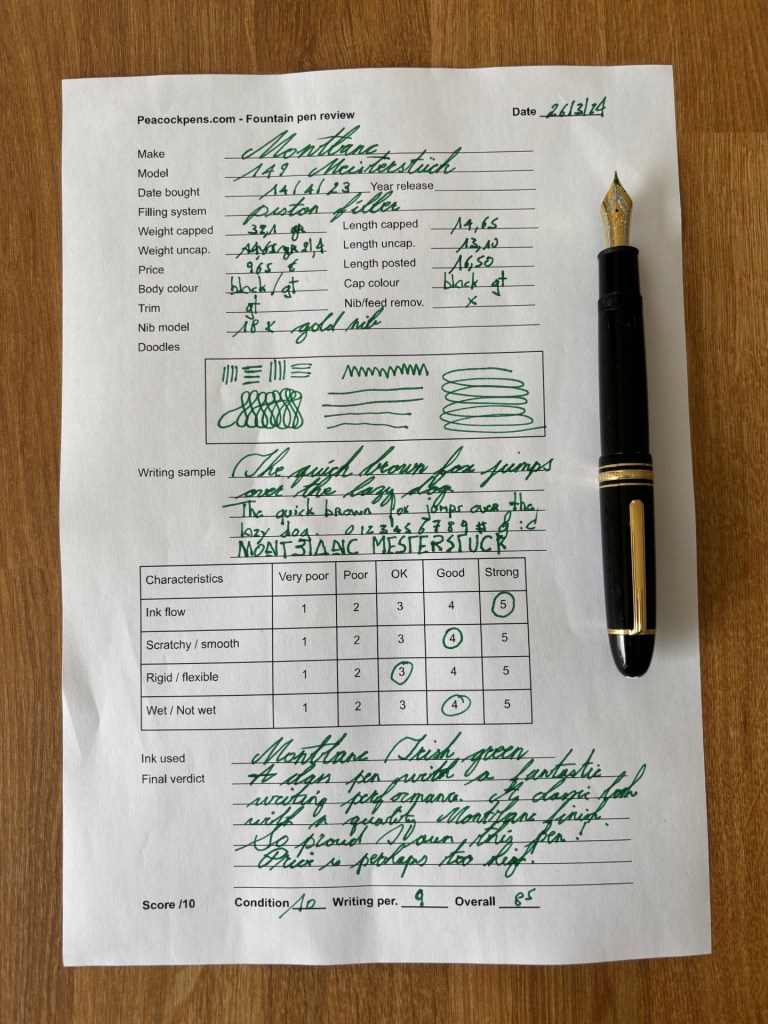 Peacockpens.com - Fountain pen review Date 26/3/24
Make Montblanc
Model 149 Meisterstück
Date bought 14/4/23 Year release
Filling system piston filler
Weight capped 32,1 gr Length capped 14,65
Weight uncap. 21,4 Length uncap. 13,10
Price 965 € Length posted 16,50
Body colour black/gt Cap colour black gt
Trim gt Nib/feed remov. x
Nib model 18 K gold nib
Doodles
Writing sample The quick brown fox jumps
over the lazy dog.
The quick brown fox jumps over the
lazy dog. 0 1 2 3 4 5 6 7 8 9 #
MONTBLANC MESTERSTUCK
Characteristics Very poor Poor OK Good Strong
Ink flow 1 2 3 4 5
Scratchy / smooth 1 2 3 4 5
Rigid / flexible 1 2 3 4 5
Wet / Not wet 1 2 3 4 5
Ink used Montblanc Irish green
Final verdict A class pen with a fantastic
writing performance. It's classic look
with a quality Montblanc finish.
So proud I own this pen!
Price is perhaps too high.
Score /10 Condition 10 Writing per. 9 Overall 85